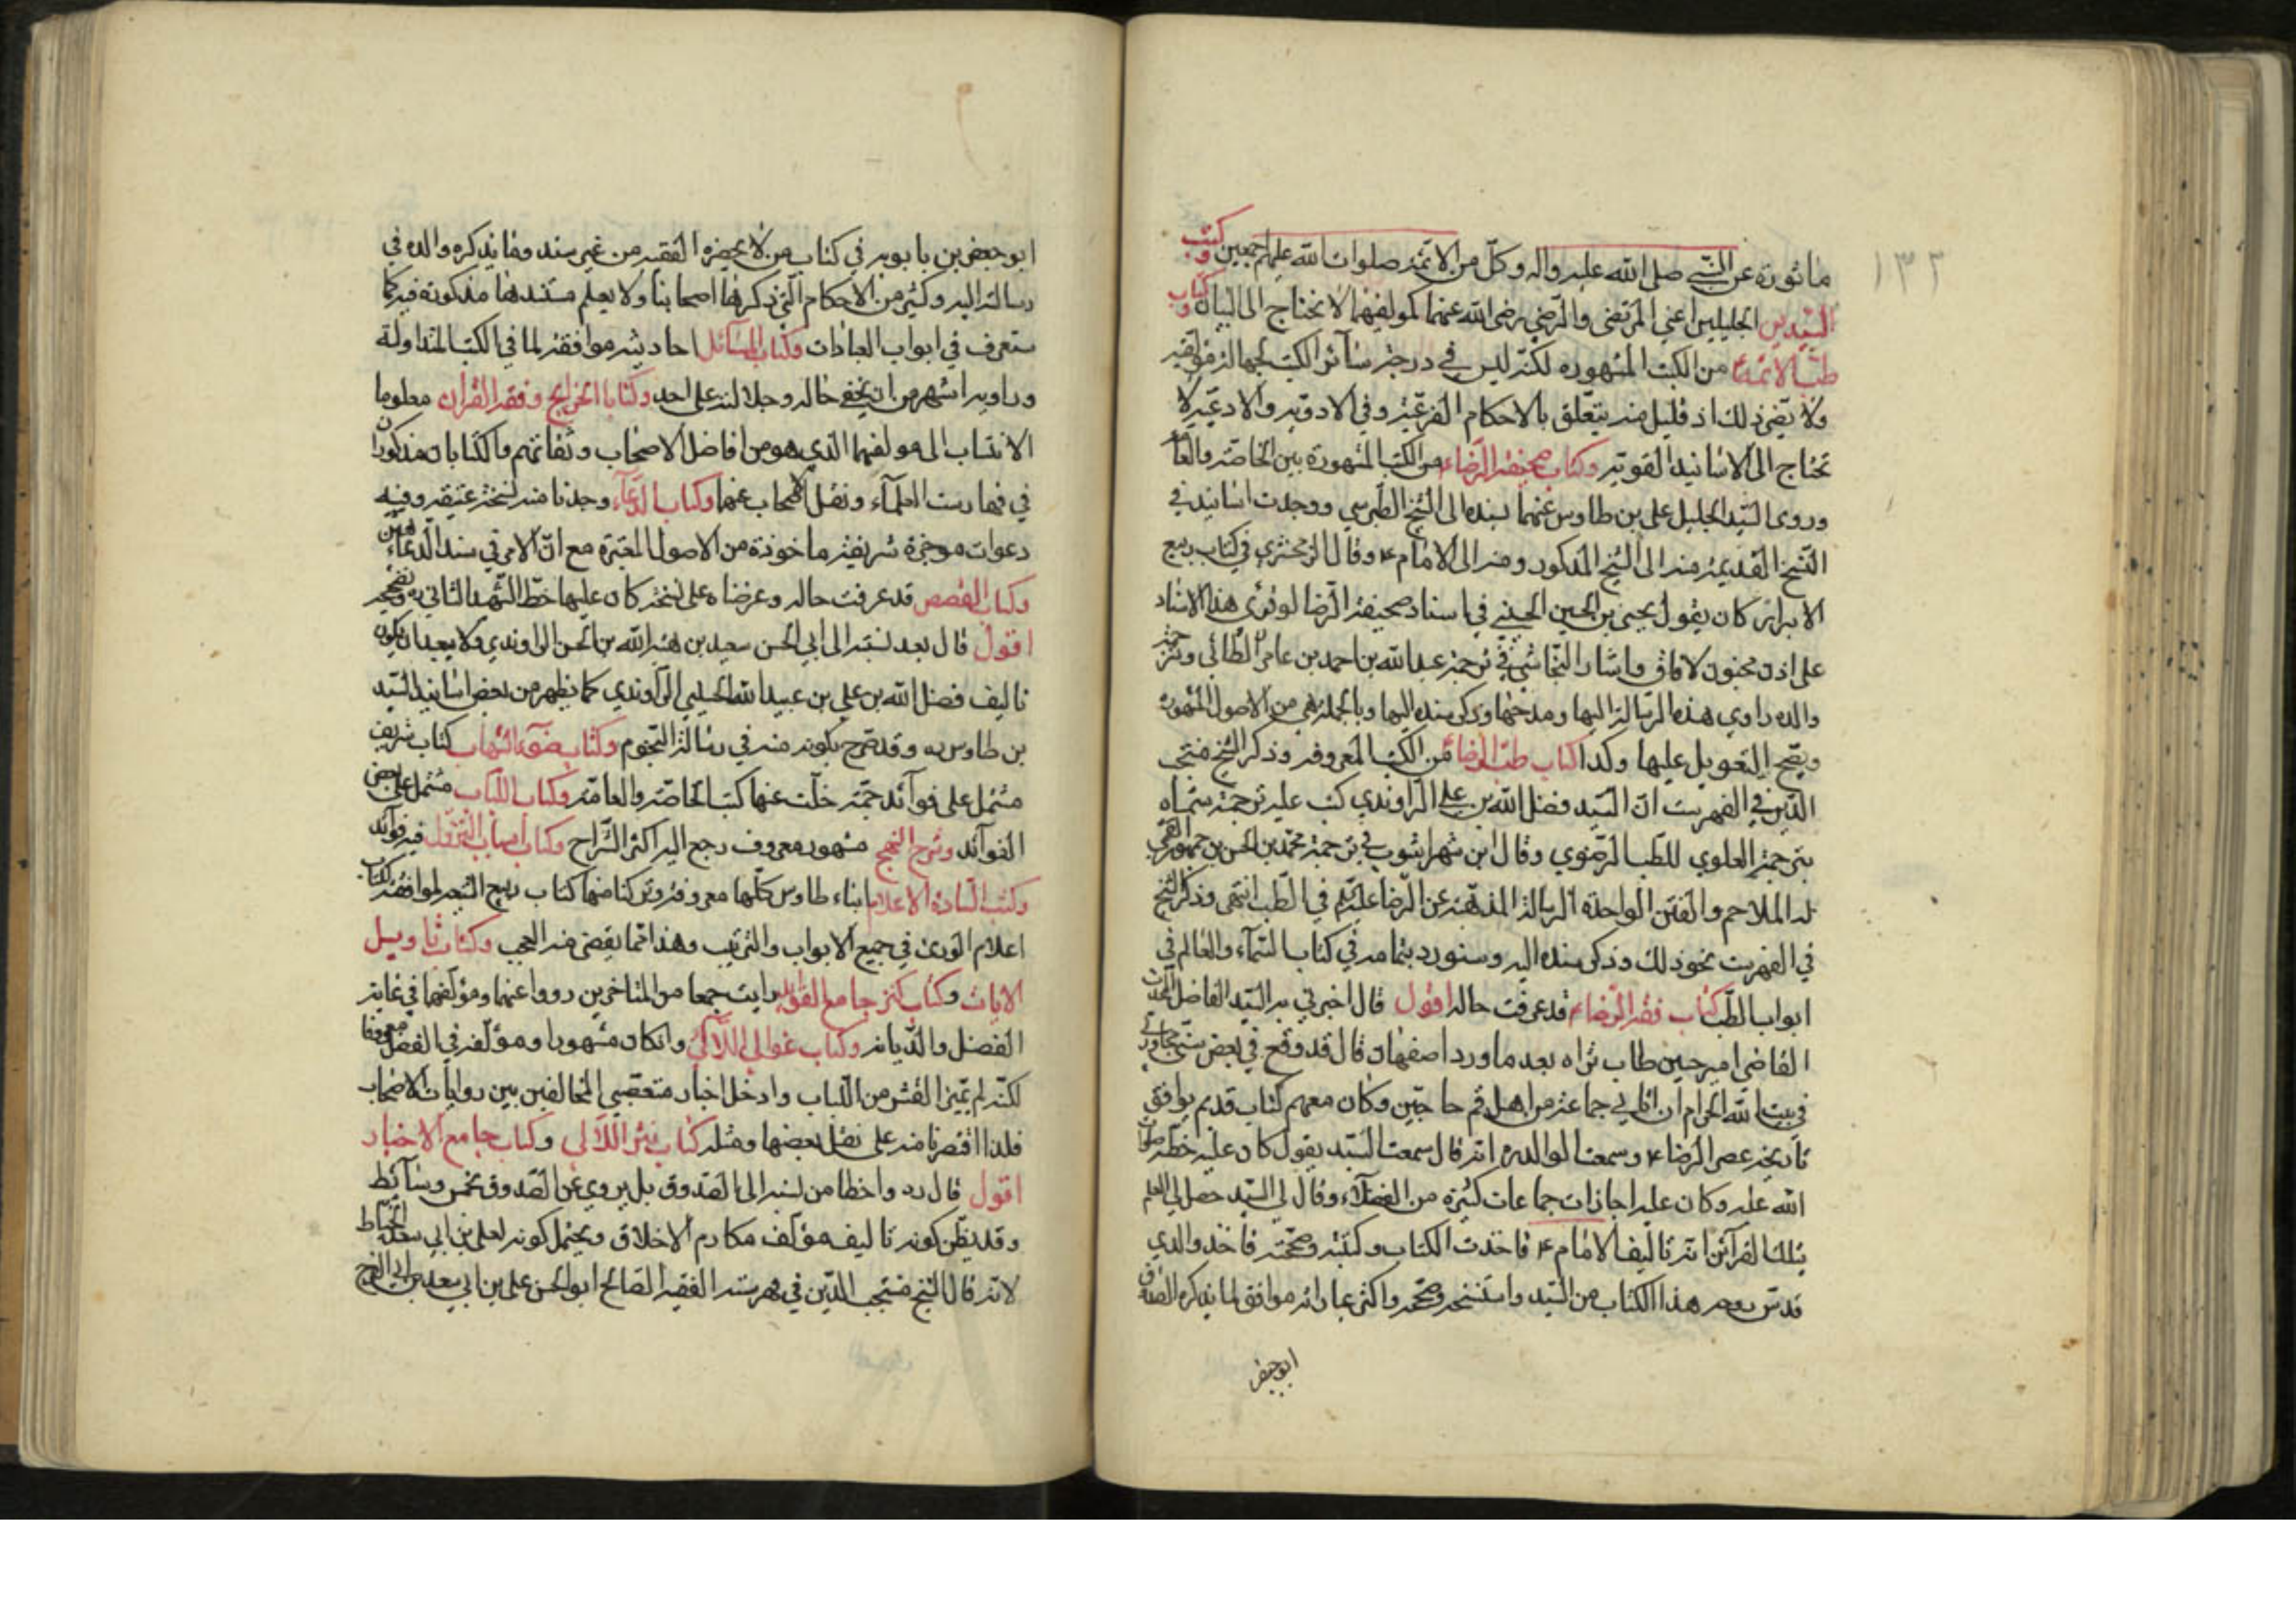 ١٣٢
ماثورة عن النبي صلى الله عليه واله وكلّ من الائمة صلوات الله عليهم اجمعين وكتب
السيدين الجليلين اعني المرتضى والرضي رضي الله عنهما كمولفيهما لا تحتاج الى البيان وكتاب
طب الائمة من الكتب المشهورة لكنه ليس في درجة سائر الكتب لجهالة مؤلفه
ولا يضر ذلك اذ قليل منه يتعلق بالاحكام الفرعية وفي الادوية والادعية لا
تحتاج الى الاسانيد القوية وكتاب صحيفة الرضاء من الكتب المشهورة بين الخاصة والعامة
وروى السيد الجليل علي بن طاوس عنهما بسنده الى الشيخ الطبرسي ووجدت اسانيد في
النسخ القديمة منه الى الشيخ المذكور ومنه الى الامام ع وقال الزمخشري في كتاب ربيع
الابرار كان يقول يحيى بن الحسين الحسني في اسناد صحيفة الرضا لو قرئ هذا الاسناد
على اذن مجنون لافاق واشار النجاشي في ترجمة عبد الله بن احمد بن عامر الطائي وترجمة
والده راوي هذه الرسالة اليها ومدحها وذكر سنده اليها وبالجملة هي من الاصول المشهورة
ويصح التعويل عليها وكذا كتاب طب الرضا من الكتب المعروفة وذكر الشيخ منتجب
الدين في الفهرست ان السيد فضل الله بن علي الراوندي كتب عليه ترجمة سماه
بترجمة العلوي للطب الرضوي وقال ابن شهراشوب في ترجمة محمد بن الحسن بن جمهور القمي
له الملاحم والفتن الواحدة الرسالة المذهبة عن الرضا عليه السلام في الطب انتهى وذكر الشيخ
في الفهرست نحو ذلك وذكر سنده اليه وسنورد بتمامه في كتاب السماء والعالم في
ابواب الطب كتاب فقه الرضاء قد عرفت حاله اقول قال اخبرني به السيد الفاضل المحدث
القاضي امير حسين طاب ثراه بعد ما ورد اصفهان قال قد وقع في بعض سني مجاورتي
في بيت الله الحرام ان اتاني جماعة من اهل قم حاجين وكان معهم كتاب قديم يوافق
تاريخه عصر الرضا ع وسمعت الوالد ره انه قال سمعت السيد يقول كان عليه خطه صلوات
الله عليه وكان عليه اجازات جماعات كثيرة من الفضلاء وقال لي السيد حصل لي العلم
بتلك القرائن انه تاليف الامام ع فاخذت الكتاب وكتبته وصححته فاخذ والدي
قدس روحه هذا الكتاب من السيد واستنسخه وصححه واكثر عباراته موافق لما يذكره الصدوق
ابوجعفر
ابو جعفر بن بابويه في كتاب من لا يحضره الفقيه من غير سند وما يذكره والده في
رسالته اليه وكثير من الاحكام التي ذكرها اصحابنا ولا يعلم مستندها مذكورة فيه كما
ستعرف في ابواب العبادات وكتاب المسائل احاديثه موافقة لما في الكتب المتداولة
وراويه اشهر من ان يخفى حاله وجلالته على احد وكتابا الخرايج وفقه القران معلوما
الانتساب الى مولفهما الذي هو من افاضل الاصحاب وثقاتهم والكتابان مذكوران
في فهارست العلماء ونقل الاصحاب عنهما وكتاب الدعاء وجدنا منه نسخة عتيقة وفيه
دعوات موجزة شريفة ماخوذة من الاصول المعتبرة مع ان الامر في سند الدعاء هين
وكتاب القصص قد عرفت حاله وعرضناه على نسخة كان عليها خط الشهيد الثاني ره وتصحيحه
اقول قال بعد نسبته الى ابي الحسن سعيد بن هبة الله بن الحسن الراوندي ولا يبعد ان يكون
تاليف فضل الله بن علي بن عبيد الله الحسيني الراوندي كما يظهر من بعض اسانيد السيد
بن طاوس ره وقد صرح بكونه منه في رسالة النجوم وكتاب ضوء الشهاب كتاب شريف
مشتمل على فوائد جمة خلت عنها كتب الخاصة والعامة وكتاب اللباب مشتمل على بعض
الفوائد وشرح النهج مشهور معروف رجع اليه اكثر الشراح وكتاب اسباب النزول فيه فوائد
وكتب السادة الاعلام ابناء طاوس كلها معروفة وتركنا منها كتاب ربيع الشيعة لموافقته لكتاب
اعلام الورى في جميع الابواب والترتيب وهذا مما يقضى منه العجب وكتاب تاويل
الايات وكتاب كنز جامع الفوائد رايت جمعا من المتاخرين رووا عنهما ومؤلفهما في غاية
الفضل والديانة وكتاب غوالي اللآلي وان كان مشهورا ومؤلفه في الفضل معروفا
لكنه لم يميز القشر من اللباب وادخل اخبار متعصبي المخالفين بين روايات الاصحاب
فلذا اقتصرنا منه على نقل بعضها ومثله كتاب نثر اللآلي وكتاب جامع الاخبار
اقول قال ره واخطا من نسبه الى الصدوق بل يروي عن الصدوق بخمس وسائط
وقد يظن كونه تاليف مؤلف مكارم الاخلاق ويحتمل كونه لعلي بن ابي سعد الخياط
لانه قال الشيخ منتجب الدين في فهرسته الفقيه الصالح ابو الحسن علي بن ابي سعد بن ابي الفرج